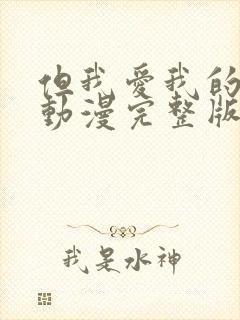 但我愛我的
動漫完整版
我是水神